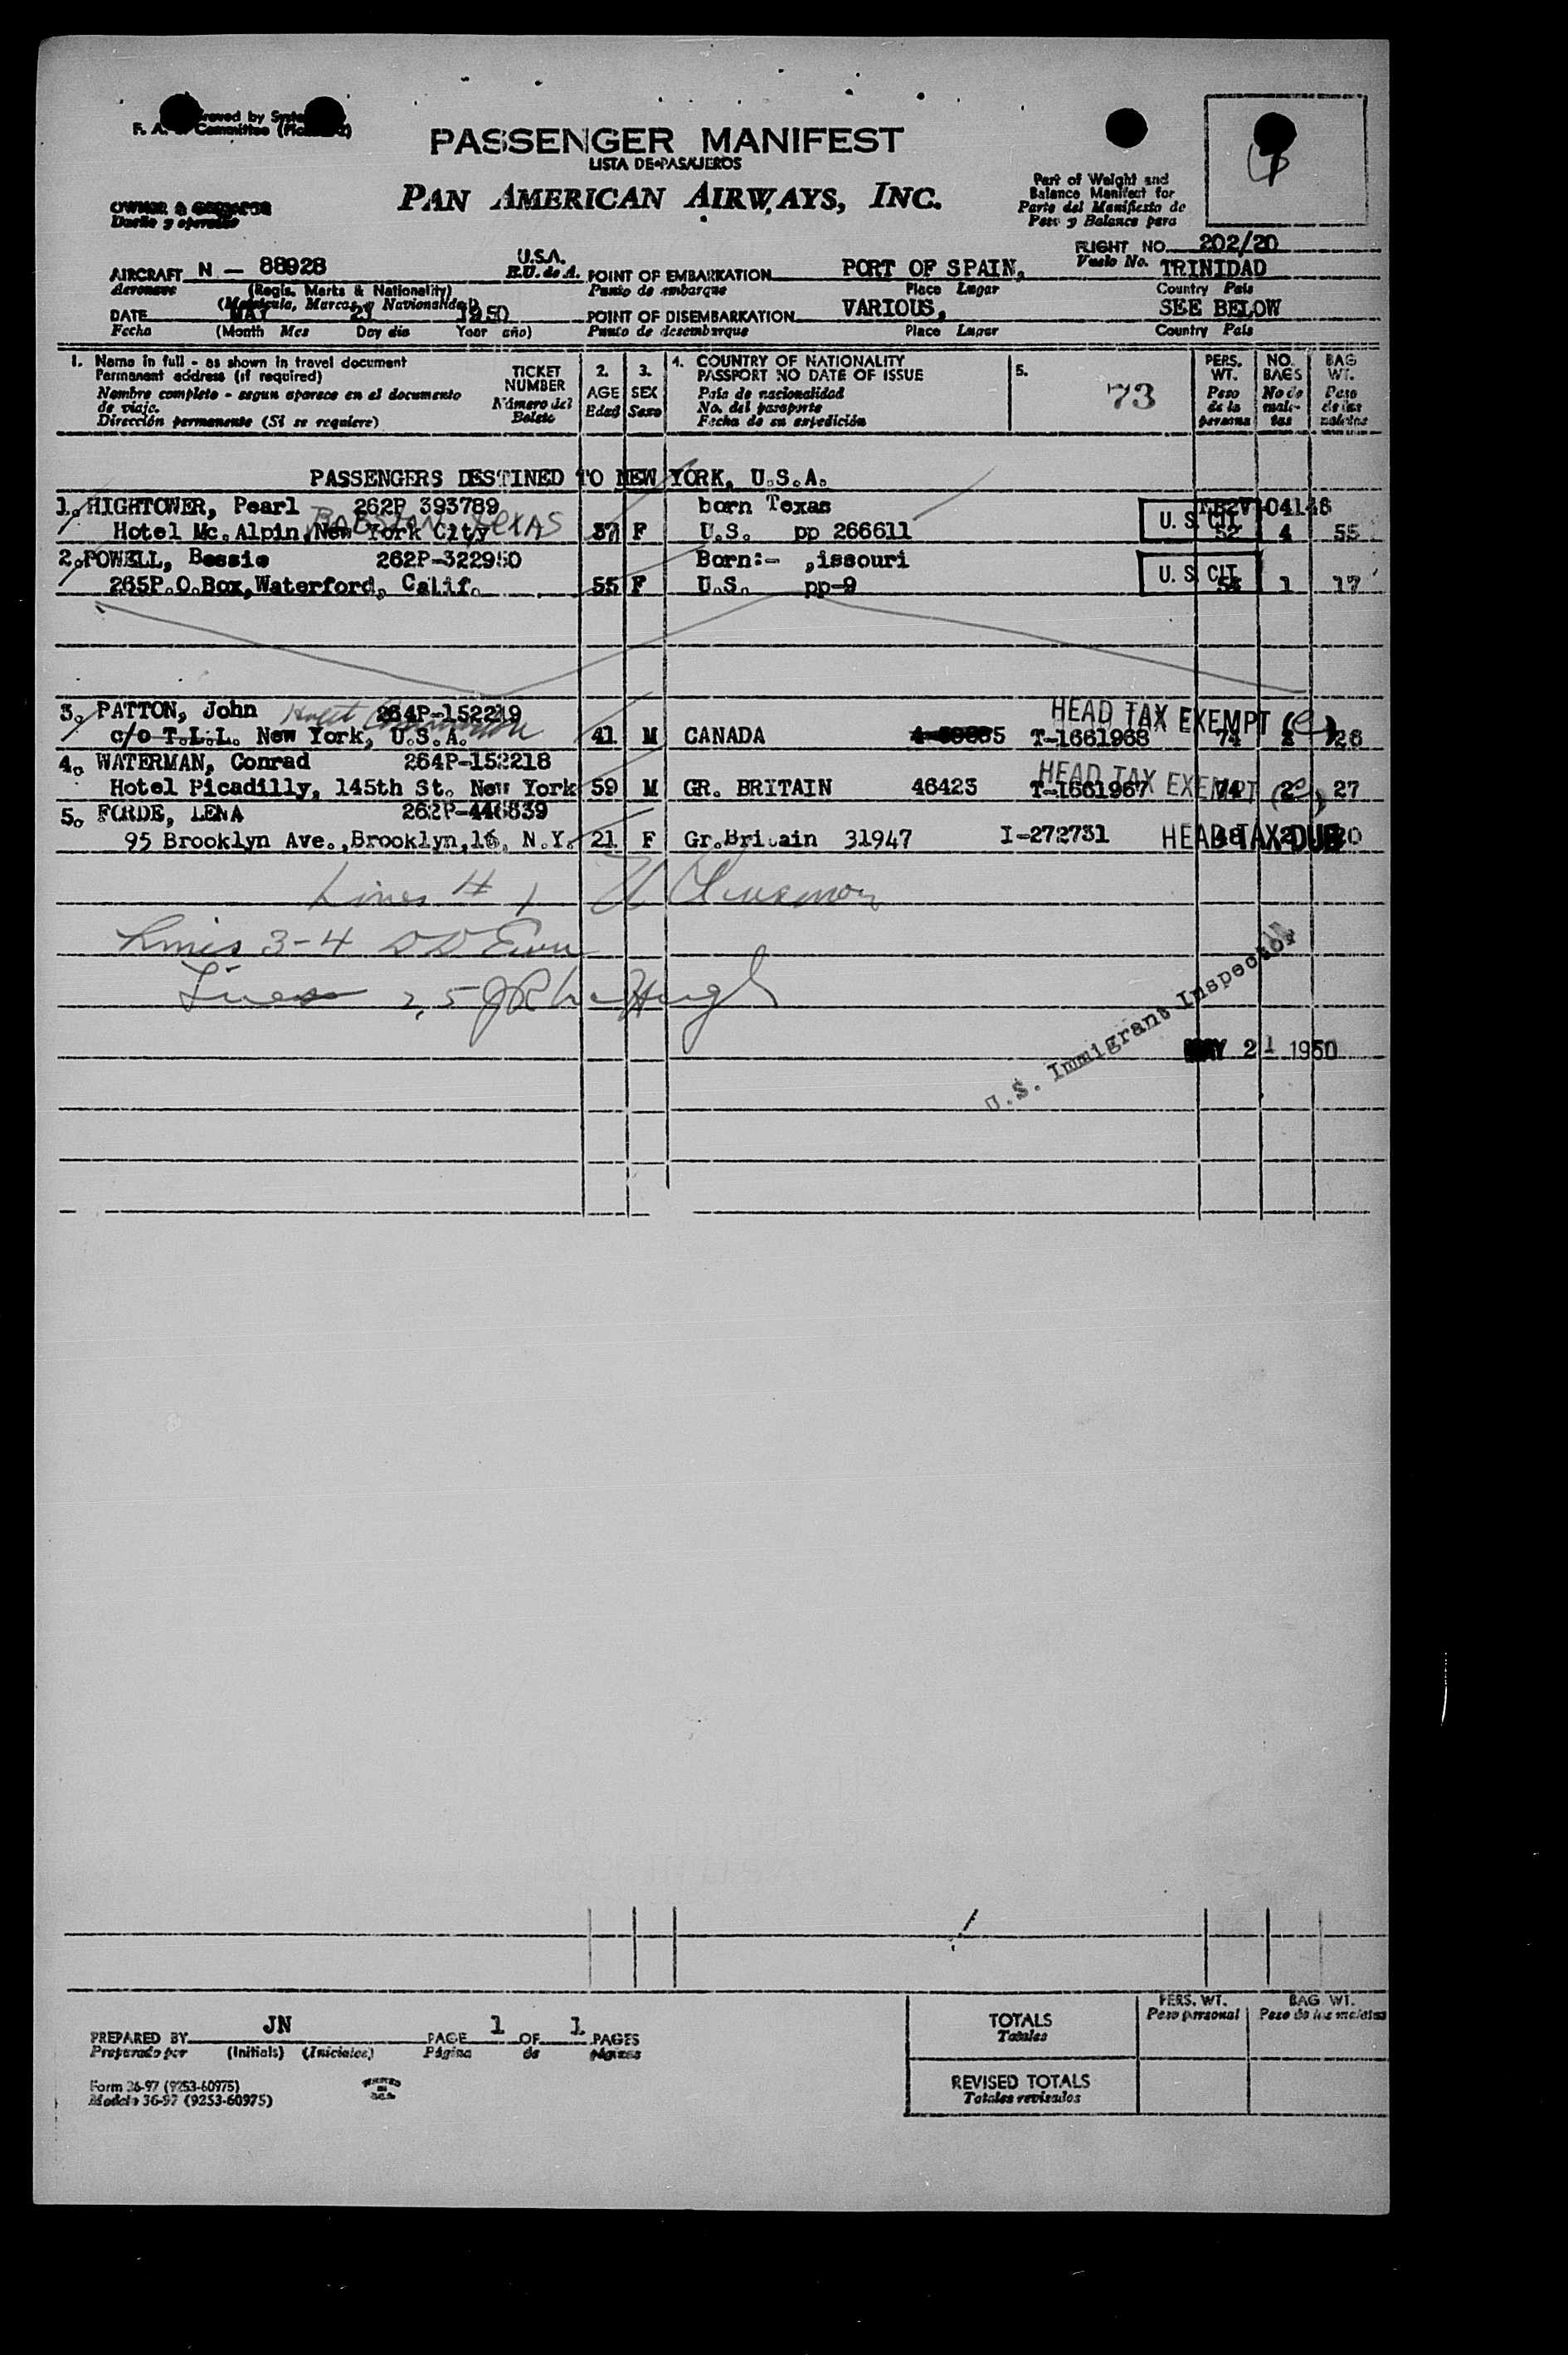 PASSENGER MANIFEST
LISTA DE PASAJEROS
PAN AMERICAN AIRWAYS, INC.
Part of Weight and
Balance Manifest for
Parte del Manifiesto de
Peso y Balance para
OWNER & OPERATOR
Dueño y operador
U.S.A.
E.U. de A.
FLIGHT NO. 202/20
Vuelo No.
AIRCRAFT N - 88928
Aeronave
(Regis. Marks & Nationality)
(Matrícula, Marcas y Nacionalidad)
POINT OF EMBARKATION PORT OF SPAIN, TRINIDAD
Punto de embarque Place Lugar Country País
DATE MAY 21 1950
Fecha (Month Mes Day día Year año)
POINT OF DISEMBARKATION VARIOUS, SEE BELOW
Punto de desembarque Place Lugar Country País
1. Name in full - as shown in travel document
Permanent address (if required)
Nombre completo - segun aparece en el documento
de viaje.
Dirección permanente (Si se requiere)
TICKET
NUMBER
Número del
Boleto
2.
AGE
Edad
3.
SEX
Sexo
4. COUNTRY OF NATIONALITY
PASSPORT NO DATE OF ISSUE
País de nacionalidad
No. del pasaporte
Fecha de su expedición
5.
73
PERS.
WT.
Peso
de la
persona
NO.
BAGS
No de
male-
tas
BAG
WT.
Peso
de las
maletas
PASSENGERS DESTINED TO NEW YORK, U.S.A.
1. HIGHTOWER, Pearl 262P 393789 born Texas
Hotel Mc.Alpin, New York City TEXAS 37 F U.S. pp 266611 U.S. CIT 52 4 55
2. POWELL, Bessie 262P-322950 Born:- ,issouri
265P.O.Box,Waterford, Calif. 55 F U.S. pp-9 U.S. CIT 54 1 17
3. PATTON, John 264P-152219 HEAD TAX EXEMPT
c/o T.L.L. New York, U.S.A. 41 M CANADA T-1661968 74 2 26
4. WATERMAN, Conrad 264P-152218 HEAD TAX EXEMPT
Hotel Picadilly, 145th St. New York 59 M GR. BRITAIN 46423 T-1661967 74 2 27
5. FORDE, LENA 262P-446839
95 Brooklyn Ave.,Brooklyn,16, N.Y. 21 F Gr.Britain 31947 I-272731 HEAD TAX DUE
Lines # 1
Lines 3-4
Lines 2, 5
U.S. Immigrant Inspector
MAY 21 1950
PREPARED BY JN PAGE 1 OF 1 PAGES
Preparado por (Initials) (Iniciales) Página de páginas
Form 36-97 (9253-60975)
Modelo 36-97 (9253-60975)
PERS. WT.
Peso personal
BAG WT.
Peso de las maletas
TOTALS
Totales
REVISED TOTALS
Totales revisados